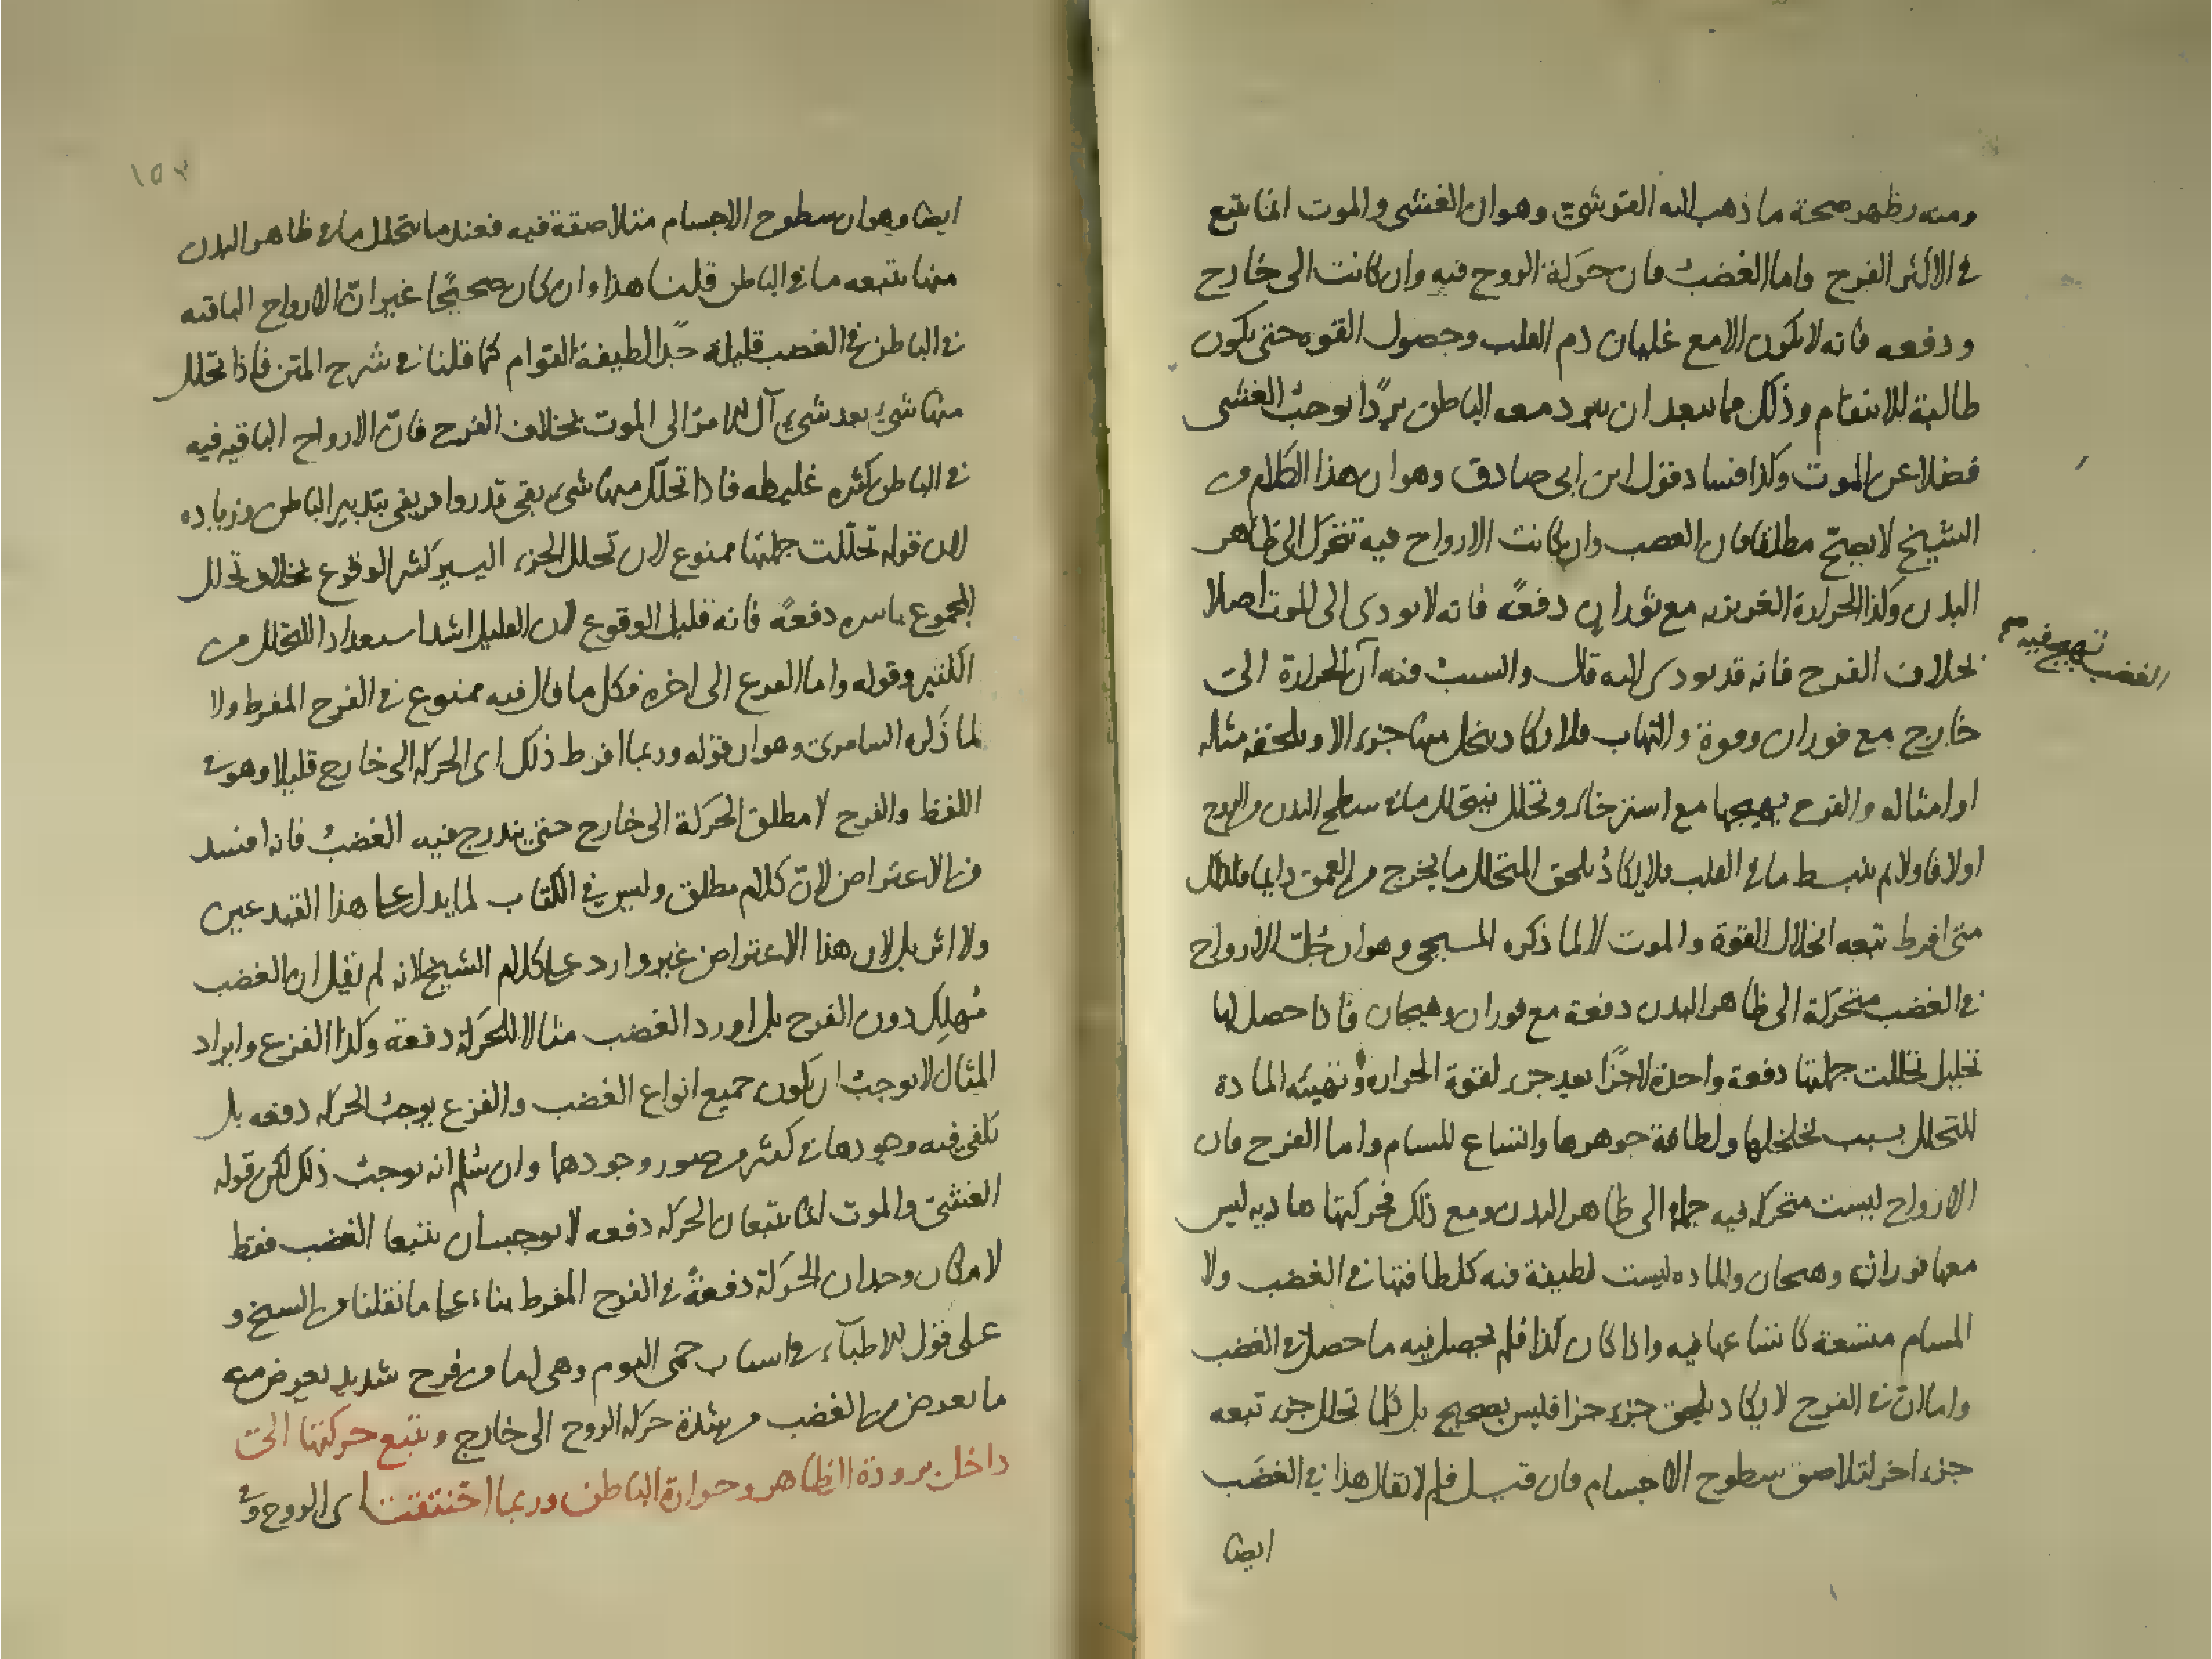 ومنه يظهر صحة ما ذهب اليه القرشى وهو ان الغشى والموت انما يتبع
فى الاكثر الفرح واما الغضب فان حركة الروح فيه وان كانت الى خارج
ودفعه فانه لا يكون الا مع غليان دم القلب وحصول القوه حتى يكون
طالبة للانتقام وذلك مما يبعد ان يبرد معه الباطن بردًا يوجب الغشى
فضلا عن الموت وكذا فساد قول ابن ابى صادق وهو ان هذا الكلام من
الشيخ لا يصح مطلقا فان الغضب وان كانت الارواح فيه تتحرك الى ظاهر
البدن وكذا الحرارة الغريزيه مع ثوران دفعةً فانه لا يودى الى الموت اصلا
بخلاف الفرح فانه قد يودى اليه قال والسبب فيه ان الحرارة الى
الغضب تهيج فيه صح
خارج مع فوران وقوة والتهاب فلا يكاد يتحلل منها جزء الا ويلحقه مثاله
او امثاله والفرح يهيجها مع استرخاء وتحلل فيتحلل ما فى سطح البدن والروح
اولا فاولا ثم ينبسط ما فى القلب فلا يكاد يلحق المتحلل ما يخرج من العمق دايما فلذلك
متى افرط تبعه انحلال القوة والموت لا لما ذكره المسيحى وهو ان جُلّ الارواح
فى الغضب متحركة الى ظاهر البدن دفعة مع فوران وهيجان فاذا حصل لها
تحليل تحللت جملتها دفعة واحدة لا جزًا بعد جزء لقوة الحراره وتهيئه المادة
للتحلل بسبب تخلخلها ولطافة جوهرها واتساع المسام واما الفرح فان
الارواح ليست متحركه فيه جملة الى ظاهر البدن ومع ذلك فحركتها هاديه ليس
معها فوران وهيجان والماده ليست لطيفة فيه كلطافتها فى الغضب ولا
المسام متسعة كاتساعها فيه واذا كان كذا فلم يحصل فيه ما حصل فى الغضب
واما ان فى الفرح لا يكاد يلحق جزء جزا فليس بصحيح بل كلما تحلل جزء تبعه
جزء اخر لتلاصق سطوح الاجسام فان قيل فلم لا يقال هذا فى الغضب
ايضا
١٥٣
ايضا وهو ان سطوح الاجسام متلاصقة فيه فعندما يتحلل ما فى ظاهر البدن
منها يتبعه ما فى الباطن قلنا هذا وان كان صحيحًا غير انّ الارواح الباقيه
فى الباطن فى الغضب قليلة جدًا لطيفة القوام كما قلنا فى شرح المتن فاذا تحلل
منها شئ بعد شئ آل الامر الى الموت بخلاف الفرح فانّ الارواح الباقيه فيه
فى الباطن كثيره غليظه فاذا تحلل منها شئ بقى قدر وافر يفى بتدبير الباطن وزياده
لان قوله تحلّلت جملتها ممنوع لان تحلل الجزء اليسير كثير الوقوع بخلاف تحلل
المجموع باسره دفعةً فانه قليل الوقوع لان القليل اشد استعدادا للتحلل من
الكثير وقوله واما الفرح الى اخره فكل ما قال فيه ممنوع فى الفرح المفرط ولا
لما ذكره السامرى وهو ان قوله وربما افرط ذلك اى الحركه الى خارج قليلا وهو فى
اللفظ والفرح لا مطلق الحركة الى خارج حتى يندرج فيه الغضب فانه افسد
من الاعتراض لانّ كلام مطلق وليس فى الكتاب لما يدل على هذا القيد عين
ولا اثر بل لان هذا الاعتراض غير وارد على كلام الشيخ لانه لم يقل ان الغضب
مُهلِك دون الفرح بل اورد الغضب مثالا للحركة دفعة وكذا الفزع وايراد
المثال لا يوجب ان يكون جميع انواع الغضب والفزع يوجب الحركه دفعه بل
يكفى فيه وجودها فى كثير من صور وجودهما وان سُلم انه يوجب ذلك لكن قوله
الغشى والموت انما يتبعان الحركه دفعه لا يوجب ان يتبعا الغضب فقط
لامكان وجدان الحركة دفعةً فى الفرح المفرط بناء على ما نقلنا من الشيخ و
على قول الاطباء فى اسباب حمى اليوم وهى اما من فرح شديد يعرض منه
ما يعرض من الغضب من شدة حركه الروح الى خارج ويتبع حركتها الى
داخل برودة الظاهر وحرارة الباطن وربما اختنقت اى الروح فى